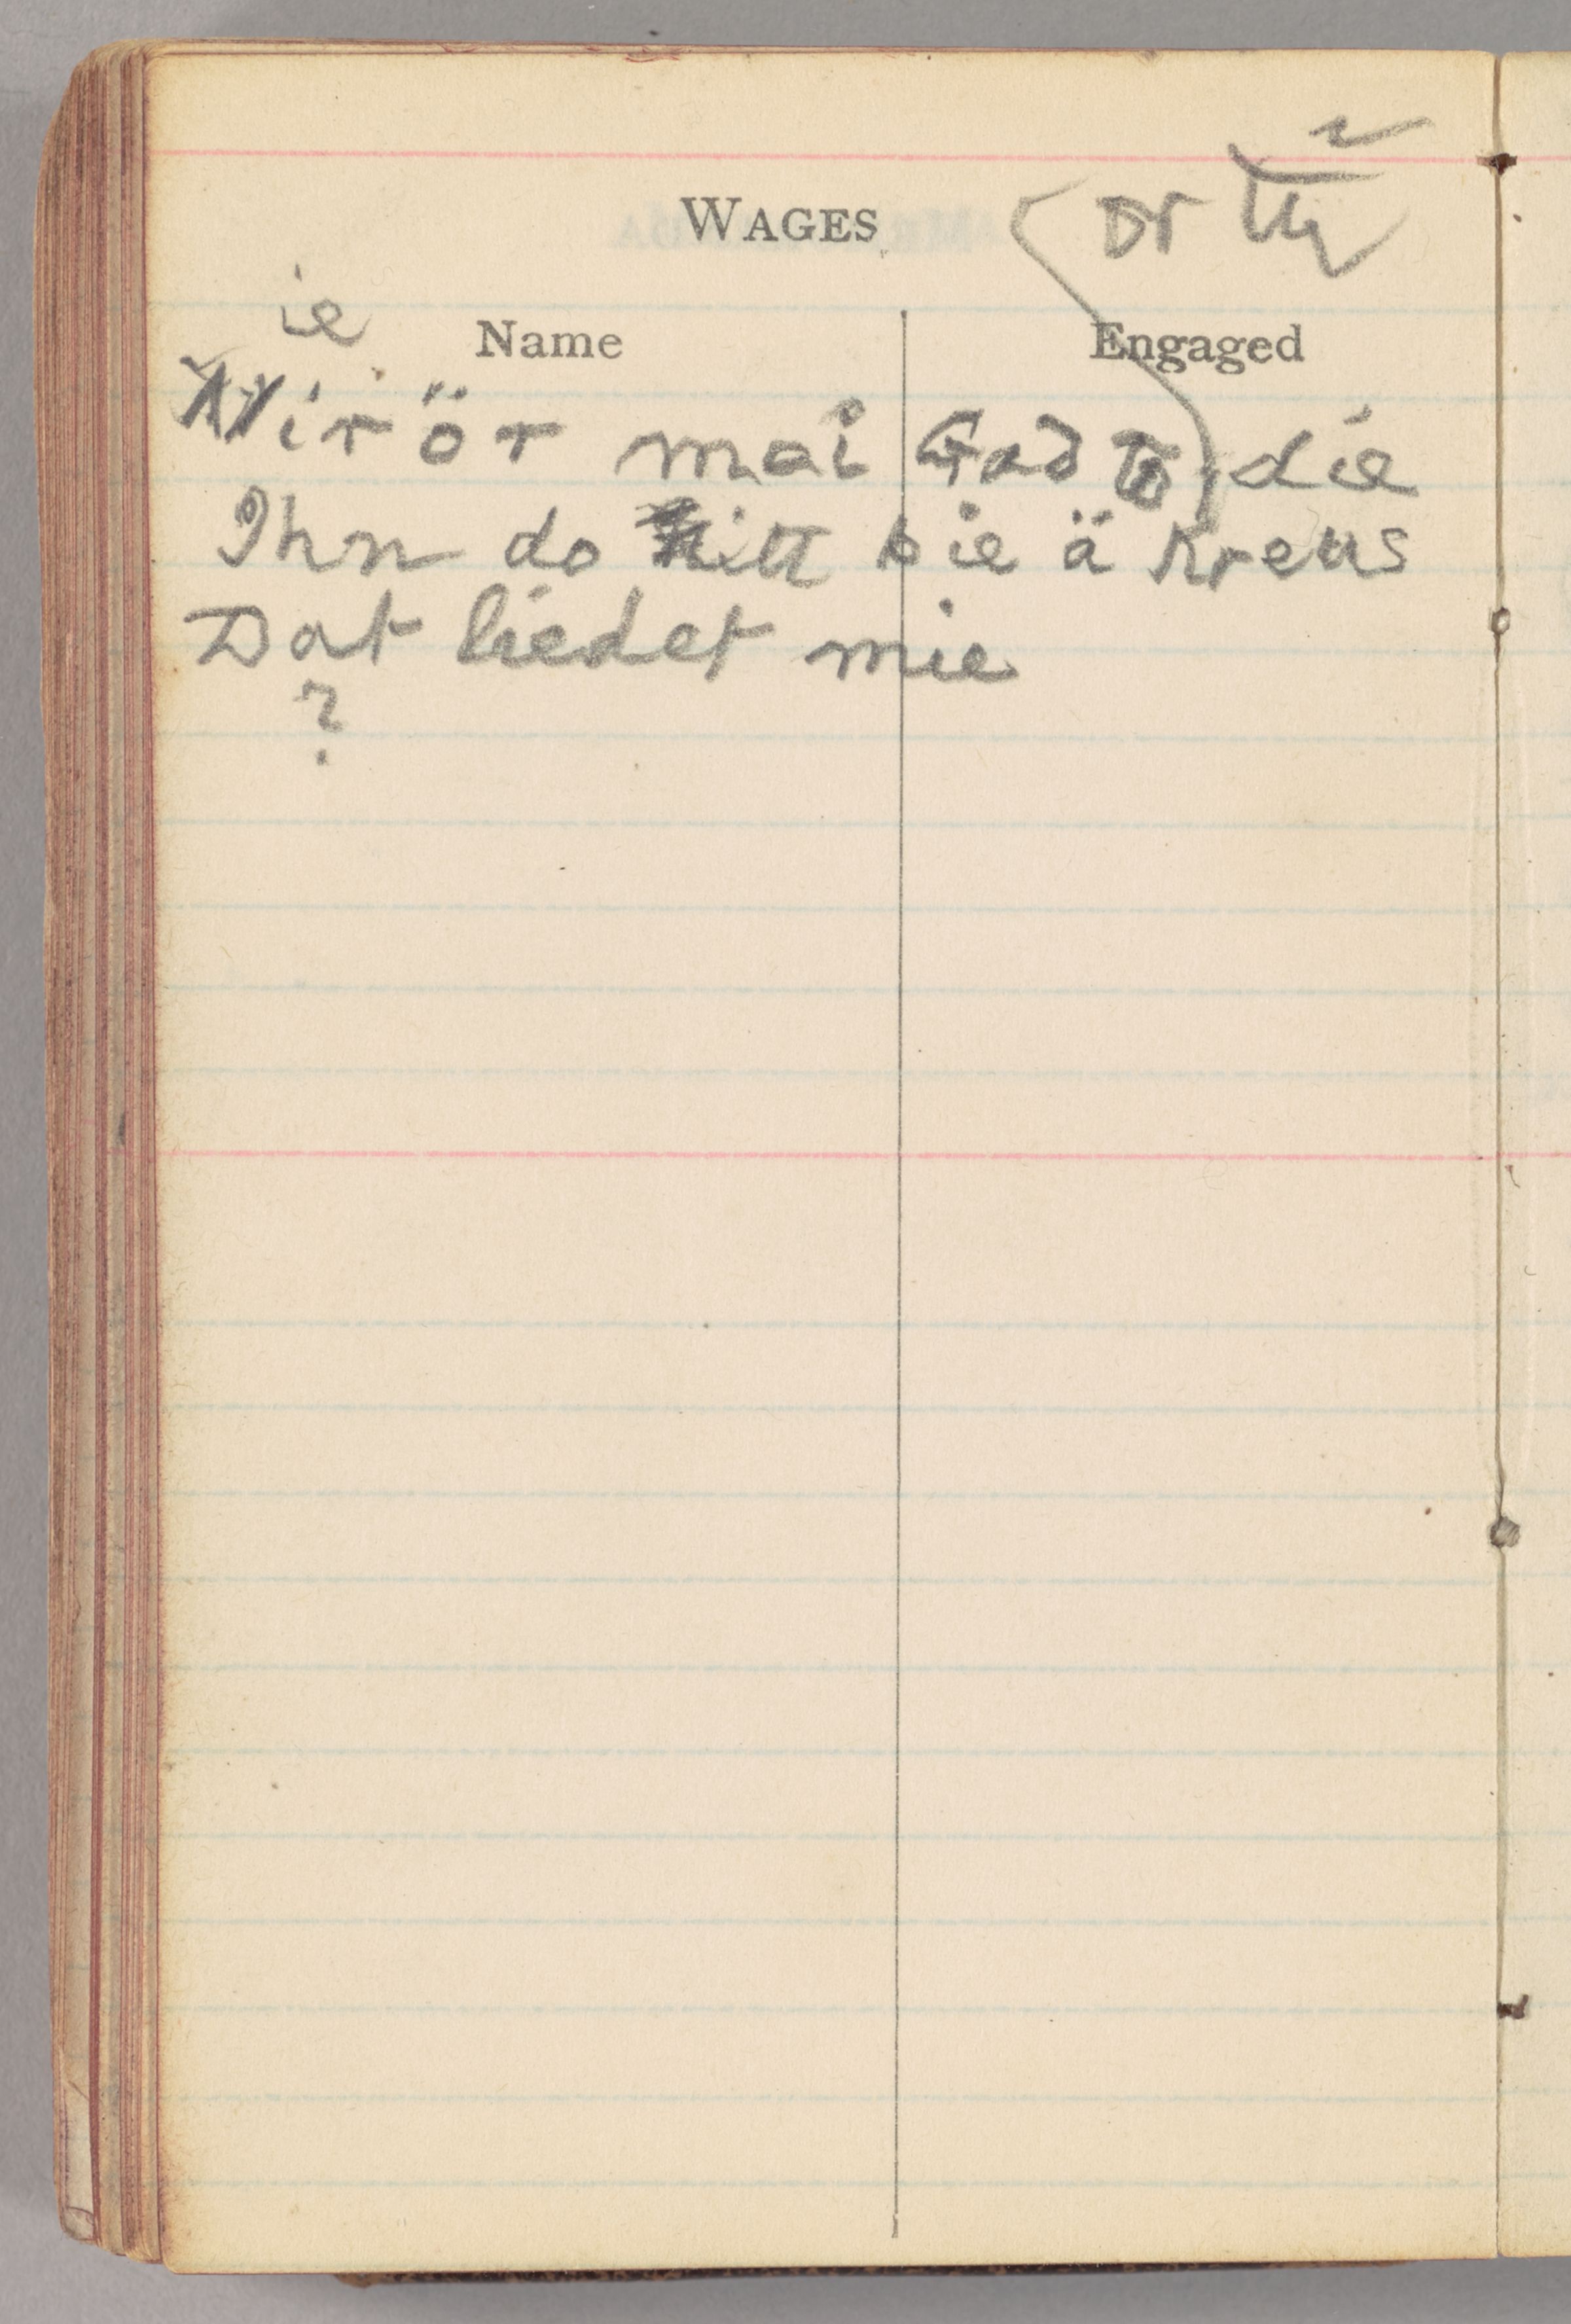 WAGES
or
ie
Name Engaged
Nirör mai Gad to die
Ihn do itt bie ä Kreus
Dat liedet mie
?